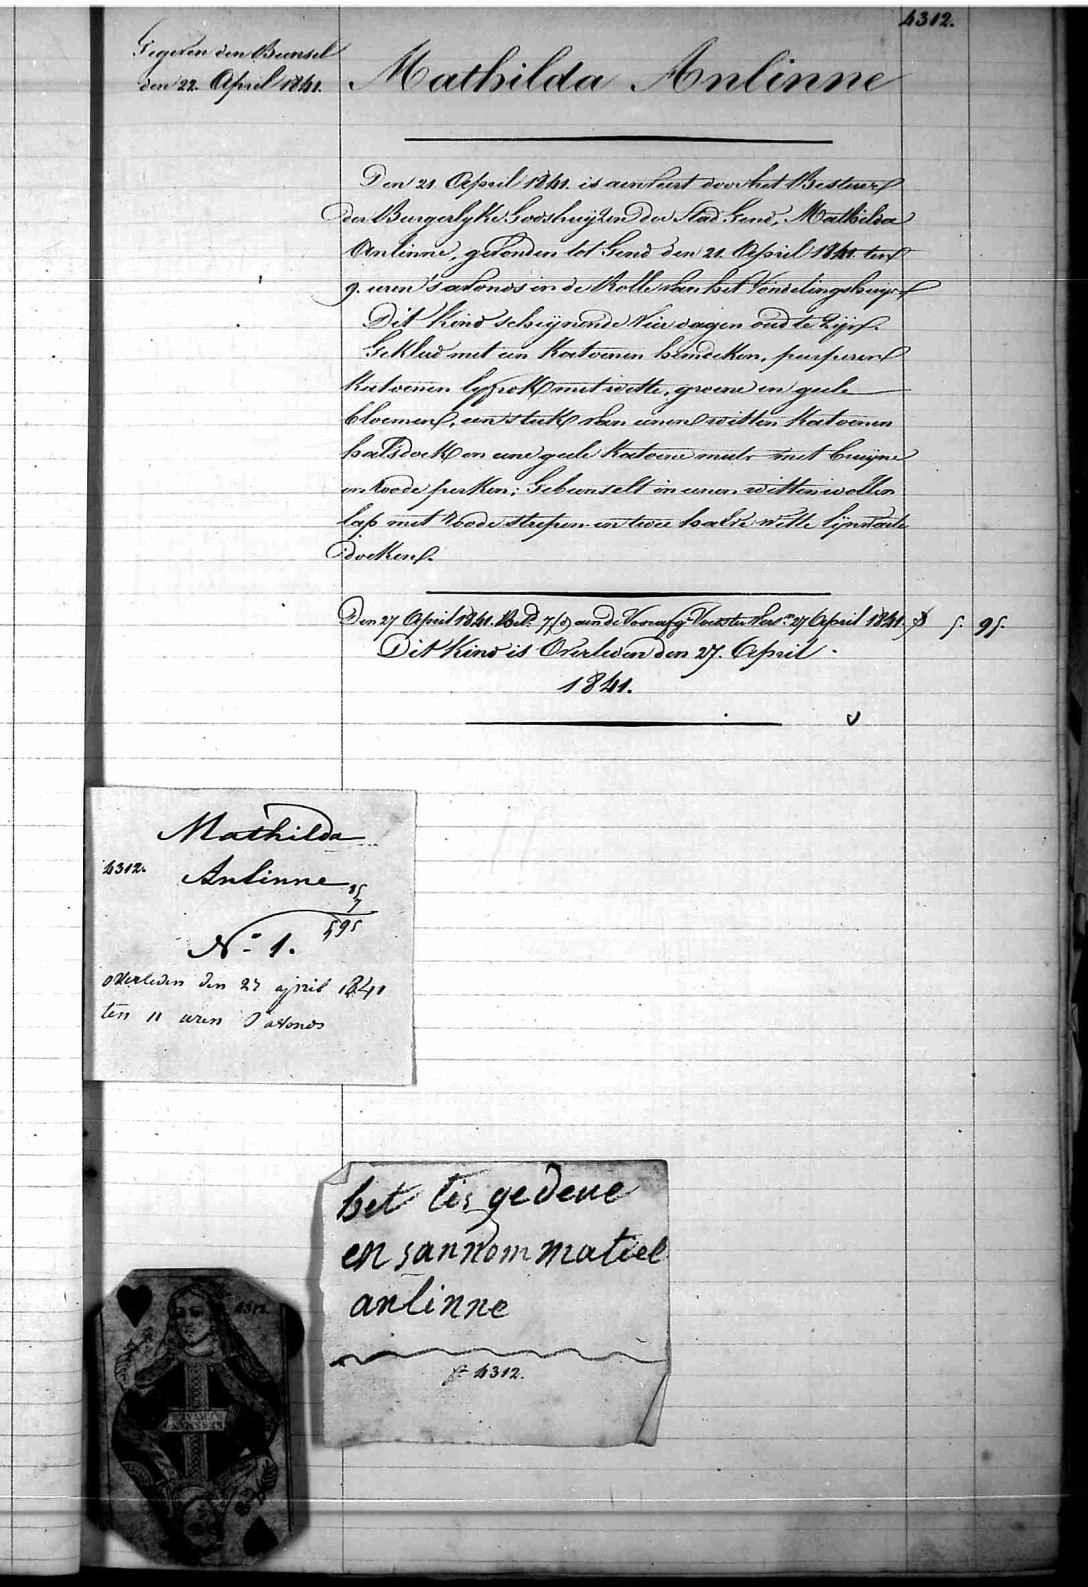 4312.
Gegeven den Bunsel
den 22. April 1841.
Mathilda Anlinne
Den 21. April 1841. is aenveert door het Bestier
der Burgerlyke Godshuyzen der Stad Gend, Mathilda
Anlinne, gevonden tot Gend den 21. April 1841. ten
9. uren 's avonds in de Rolle van het Vondelingshuys.
Dit Kind scheynende vier dagen oud te zijn.
Gekleed met een Katoenen hemdeken, purperen
Katoenen lyfrok met witte, groene en geele
bloemen, een stuk van eenen witten Katoenen
halsdoek en eene geele Katoene muts met bruyne
en roode perken; Gebunselt in eenen witten wollen
lap met roode strepen en twee halve witte lijnwaete
doeken.
Den 27 April 1841. 27 April 1841. 5. 95.
Dit Kind is Overleden den 27. April
1841.
Mathilda
4312.
Anlinne
595
No. 1.
overleden den 27 april 1841
ten 11 uren S avonds
het tis gedeue
en sannom matiel
anlinne
4312.
4312.